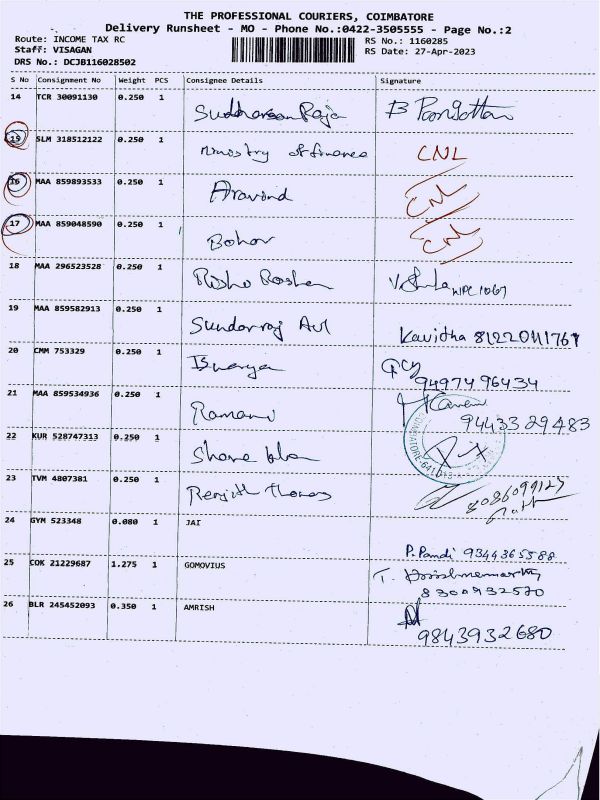 THE PROFESSIONAL COURIERS, COIMBATORE
Delivery Runsheet - MO - Phone No.:0422-3505555 - Page No.:2
Route: INCOME TAX RC RS No.: 1160285
Staff: VISAGAN RS Date: 27-Apr-2023
DRS No.: DCJB116028502
S No Consignment No Weight PCS Consignee Details Signature
14 TCR 30091130 0.250 1 Sudharsan Raja
15 SLM 318512122 0.250 1 Ministry of finance CNL
16 MAA 859893533 0.250 1 Aravind CNL
17 MAA 859048590 0.250 1 CNL
18 MAA 296523528 0.250 1
19 MAA 859582913 0.250 1 Kavitha
20 CMM 753329 0.250 1
9497496434
21 MAA 859534936 0.250 1 Ramani
9443329483
22 KUR 528747313 0.250 1
23 TVM 4807381 0.250 1 Renjith Thomas
24 GYM 523348 0.080 1 JAI
P. Pandi 9344365588
25 COK 21229687 1.275 1 GOMOVIUS T.
8300932570
26 BLR 245452093 0.350 1 AMRISH
9843932680